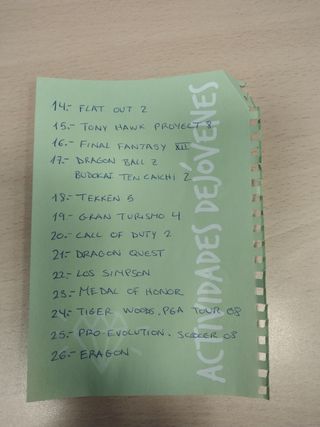 14.- FLAT OUT 2
15.- TONY HAWK PROYECT 8
16.- FINAL FANTASY XII
17.- DRAGON BALL Z
BUDOKAI TENCAICHI 2
18.- TEKKEN 5
19.- GRAN TURISMO 4
20.- CALL OF DUTY 2
21.- DRAGON QUEST
22.- LOS SIMPSON
23.- MEDAL OF HONOR
24.- TIGER WOODS. PGA TOUR 08
25.- PRO-EVOLUTION. SOCCER 08
26.- ERAGON
ACTIVIDADES DEJÓVENES